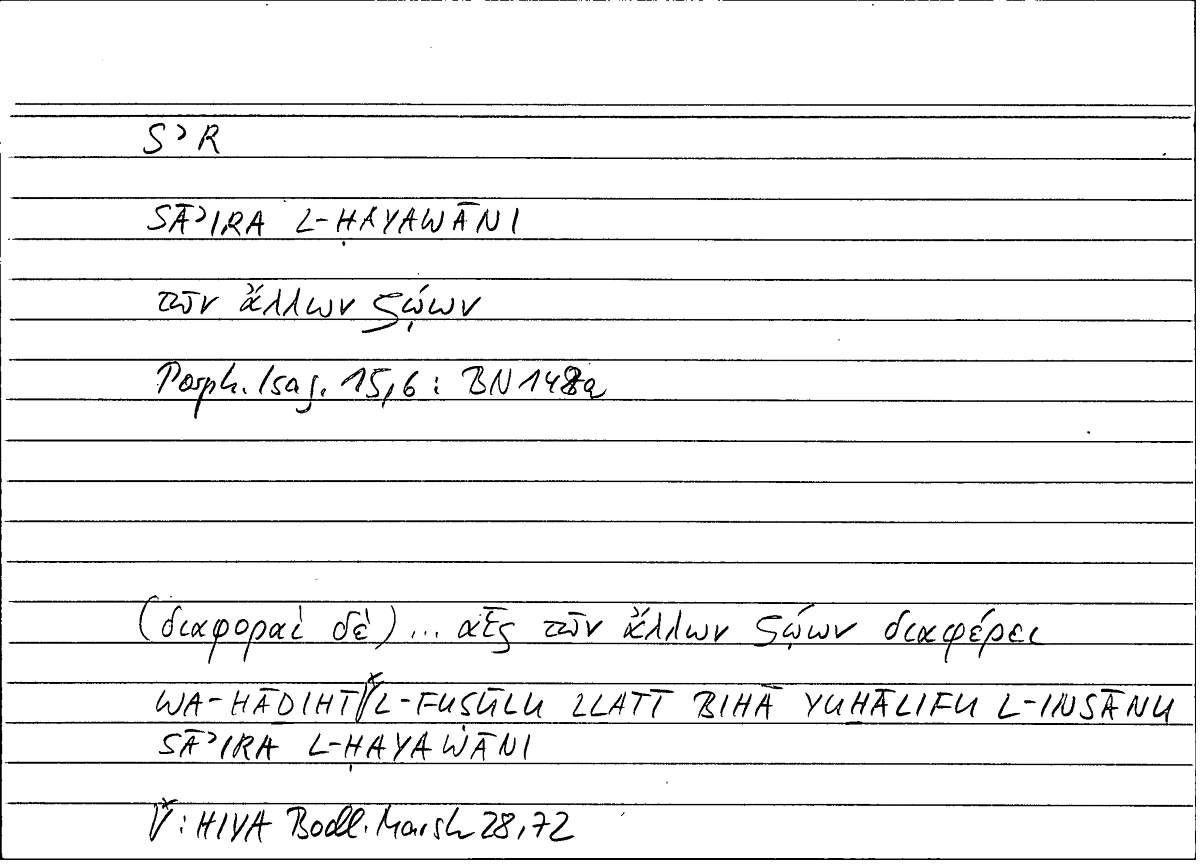 SʾR
SĀʾIRA L-ḤAYAWĀNI
τῶν ἄλλων ζῴων
Porph. Isag. 15,6 : BN 148a
(διαφοραὶ δὲ) ... αἷς τῶν ἄλλων ζῴων διαφέρει
WA-HĀḎIHĪ L-FUṢŪLU LLATĪ BIHĀ YUḪĀLIFU L-INSĀNU
SĀʾIRA L-ḤAYAWĀNI
: HIYA Bodl. Marsh 28,72